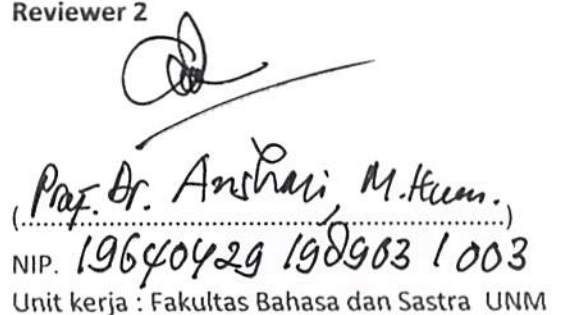 Reviewer 2
(Prof. Dr. Anshari, M.Hum.)
NIP. 19640429 198903 1 003
Unit kerja : Fakultas Bahasa dan Sastra UNM